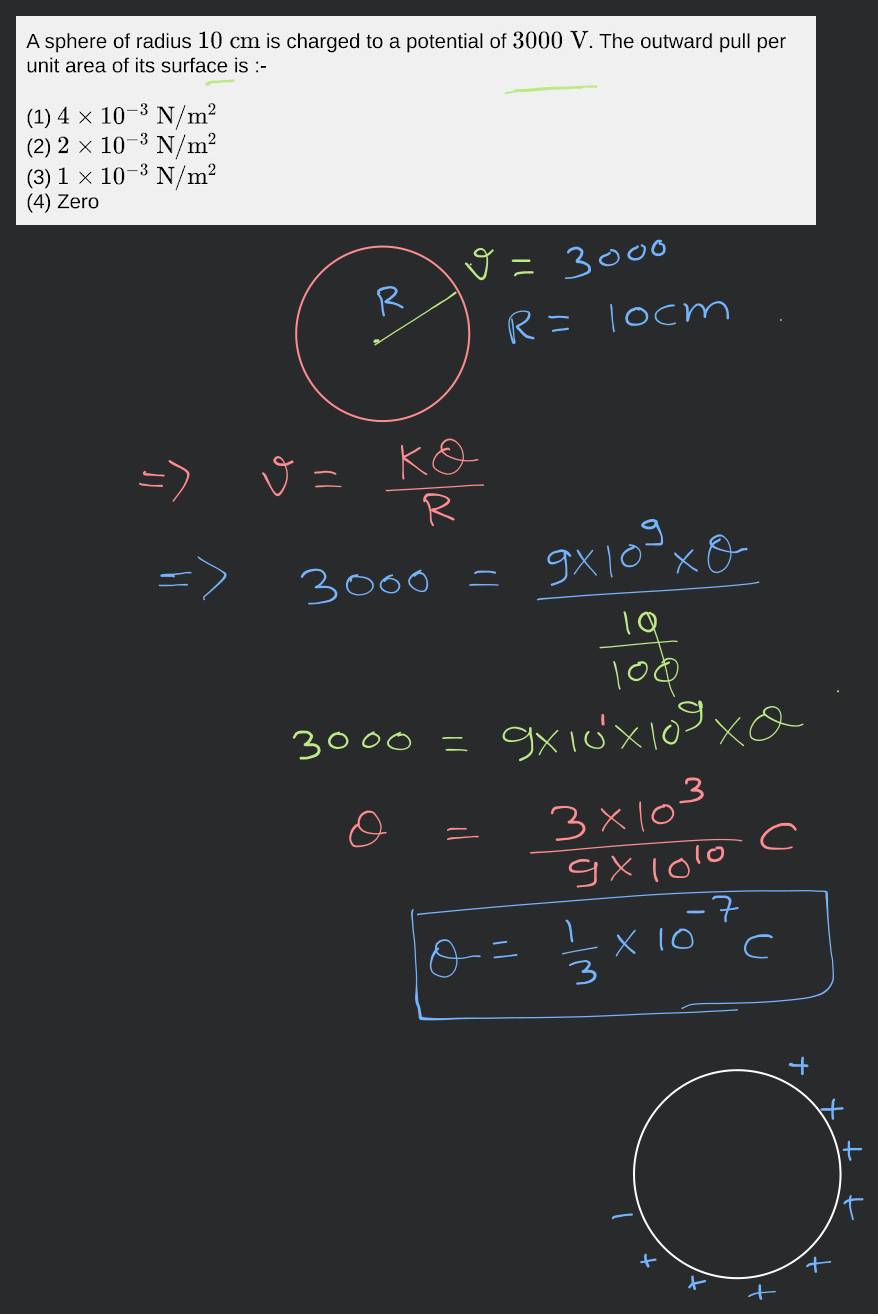 A sphere of radius 10 cm is charged to a potential of 3000 V. The outward pull per
unit area of its surface is :-
(1) 4 × 10⁻³ N/m²
(2) 2 × 10⁻³ N/m²
(3) 1 × 10⁻³ N/m²
(4) Zero
V = 3000
R
R = 10cm
=> V = KQ/R
=> 3000 = 9×10⁹×Q / (10/100)
3000 = 9×10¹×10⁹×Q
Q = 3×10³ / 9×10¹⁰ C
Q = 1/3 × 10⁻⁷ C
+
+
+
+
-
+ + + +